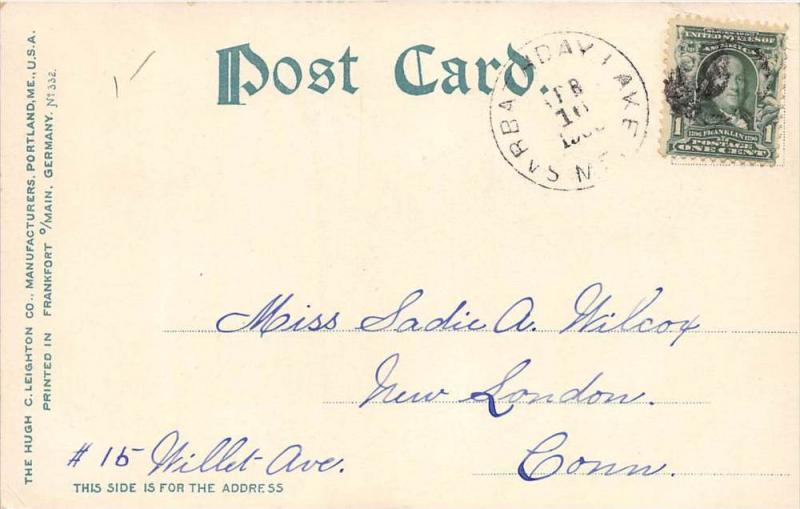 THE HUGH C. LEIGHTON CO., MANUFACTURERS, PORTLAND, ME., U.S.A.
PRINTED IN FRANKFORT o/MAIN, GERMANY. No 332.
Post Card.
SABBATHDAY LAKE
16
ME.
UNITED STATES OF
AMERICA
1 FRANKLIN 1
POSTAGE
ONE CENT
Miss Sadie A. Wilcox
New London.
# 15 Willet Ave.
Conn.
THIS SIDE IS FOR THE ADDRESS